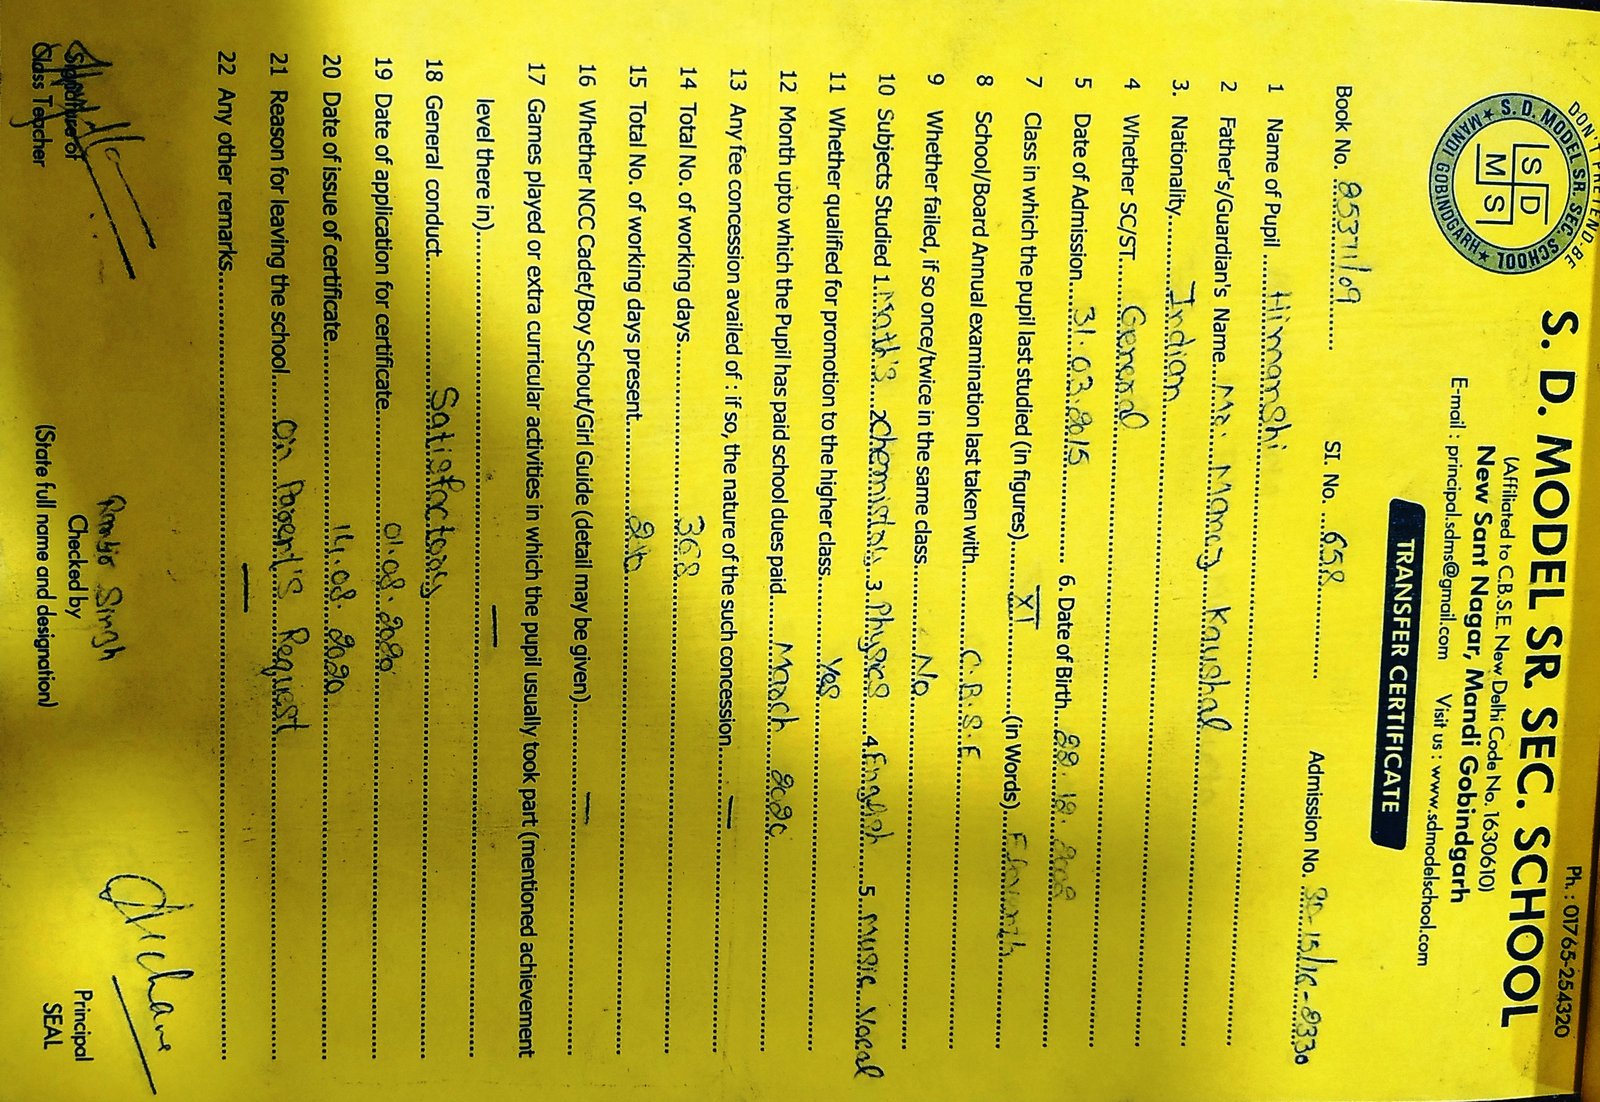 DON'T PRETEND-BE
S. D. MODEL SR. SEC. SCHOOL
★ MANDI GOBINDGARH ★
S D
M S
Ph. : 01765-254320
S. D. MODEL SR. SEC. SCHOOL
(Affiliated to C.B.S.E. New Delhi Code No. 1630610)
New Sant Nagar, Mandi Gobindgarh
E-mail : principal.sdms@gmail.com Visit us : www.sdmodelschool.com
TRANSFER CERTIFICATE
Book No. 8537/09 Sl. No. 658 Admission No.
1 Name of Pupil Himanshi
2 Father's/Guardian's Name Mr. Manoj Kaushal
3. Nationality Indian
4 Whether SC/ST General
5 Date of Admission 31.03.2015 6. Date of Birth
7 Class in which the pupil last studied (in figures) XI (in Words) Eleventh
8 School/Board Annual examination last taken with C.B.S.E
9 Whether failed, if so once/twice in the same class No
10 Subjects Studied 1. Math's 2 chemistry 3 Physics 4 English 5. Music Vocal
11 Whether qualified for promotion to the higher class Yes
12 Month upto which the Pupil has paid school dues paid March 2020
13 Any fee concession availed of : if so, the nature of the such concession —
14 Total No. of working days 368
15 Total No. of working days present
16 Whether NCC Cadet/Boy Schout/Girl Guide (detail may be given) —
17 Games played or extra curricular activities in which the pupil usually took part (mentioned achievement
level there in) —
18 General conduct Satisfactory
19 Date of application for certificate 01.08.2020
20 Date of issue of certificate 14.08.2020
21 Reason for leaving the school On Parent's Request
22 Any other remarks —
Singh
Signature of Checked by Principal
Class Teacher (State full name and designation) SEAL